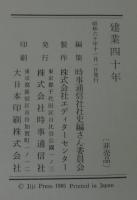 建業四十年
昭和六十年十一月一日発行
〔非売品〕
編集 時事通信社社史編さん委員会
製作 株式会社エディターセンター
発行 株式会社時事通信社
東京都千代田区日比谷公園一ノ三
印刷 大日本印刷株式会社
© Jiji Press 1985 Printed in Japan